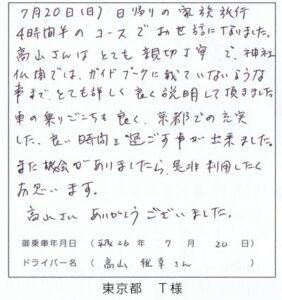 7月20日(日)日帰りの家族旅行
4時間半のコースでお世話になりました。
高山さんはとても親切丁寧で、神社
仏閣では、ガイドブックに載ていないような
事まで、とても詳しく良く説明して頂きました。
車の乗りごこちも良く、京都での充実
した、良い時間を過ごす事が出来ました。
また機会がありましたら、是非利用したく
お思います。
高山さん ありがとうございました。
御乗車年月日 (平成26年 7月 20日)
ドライバー名 (高山 雅幸さん)
東京都 T様